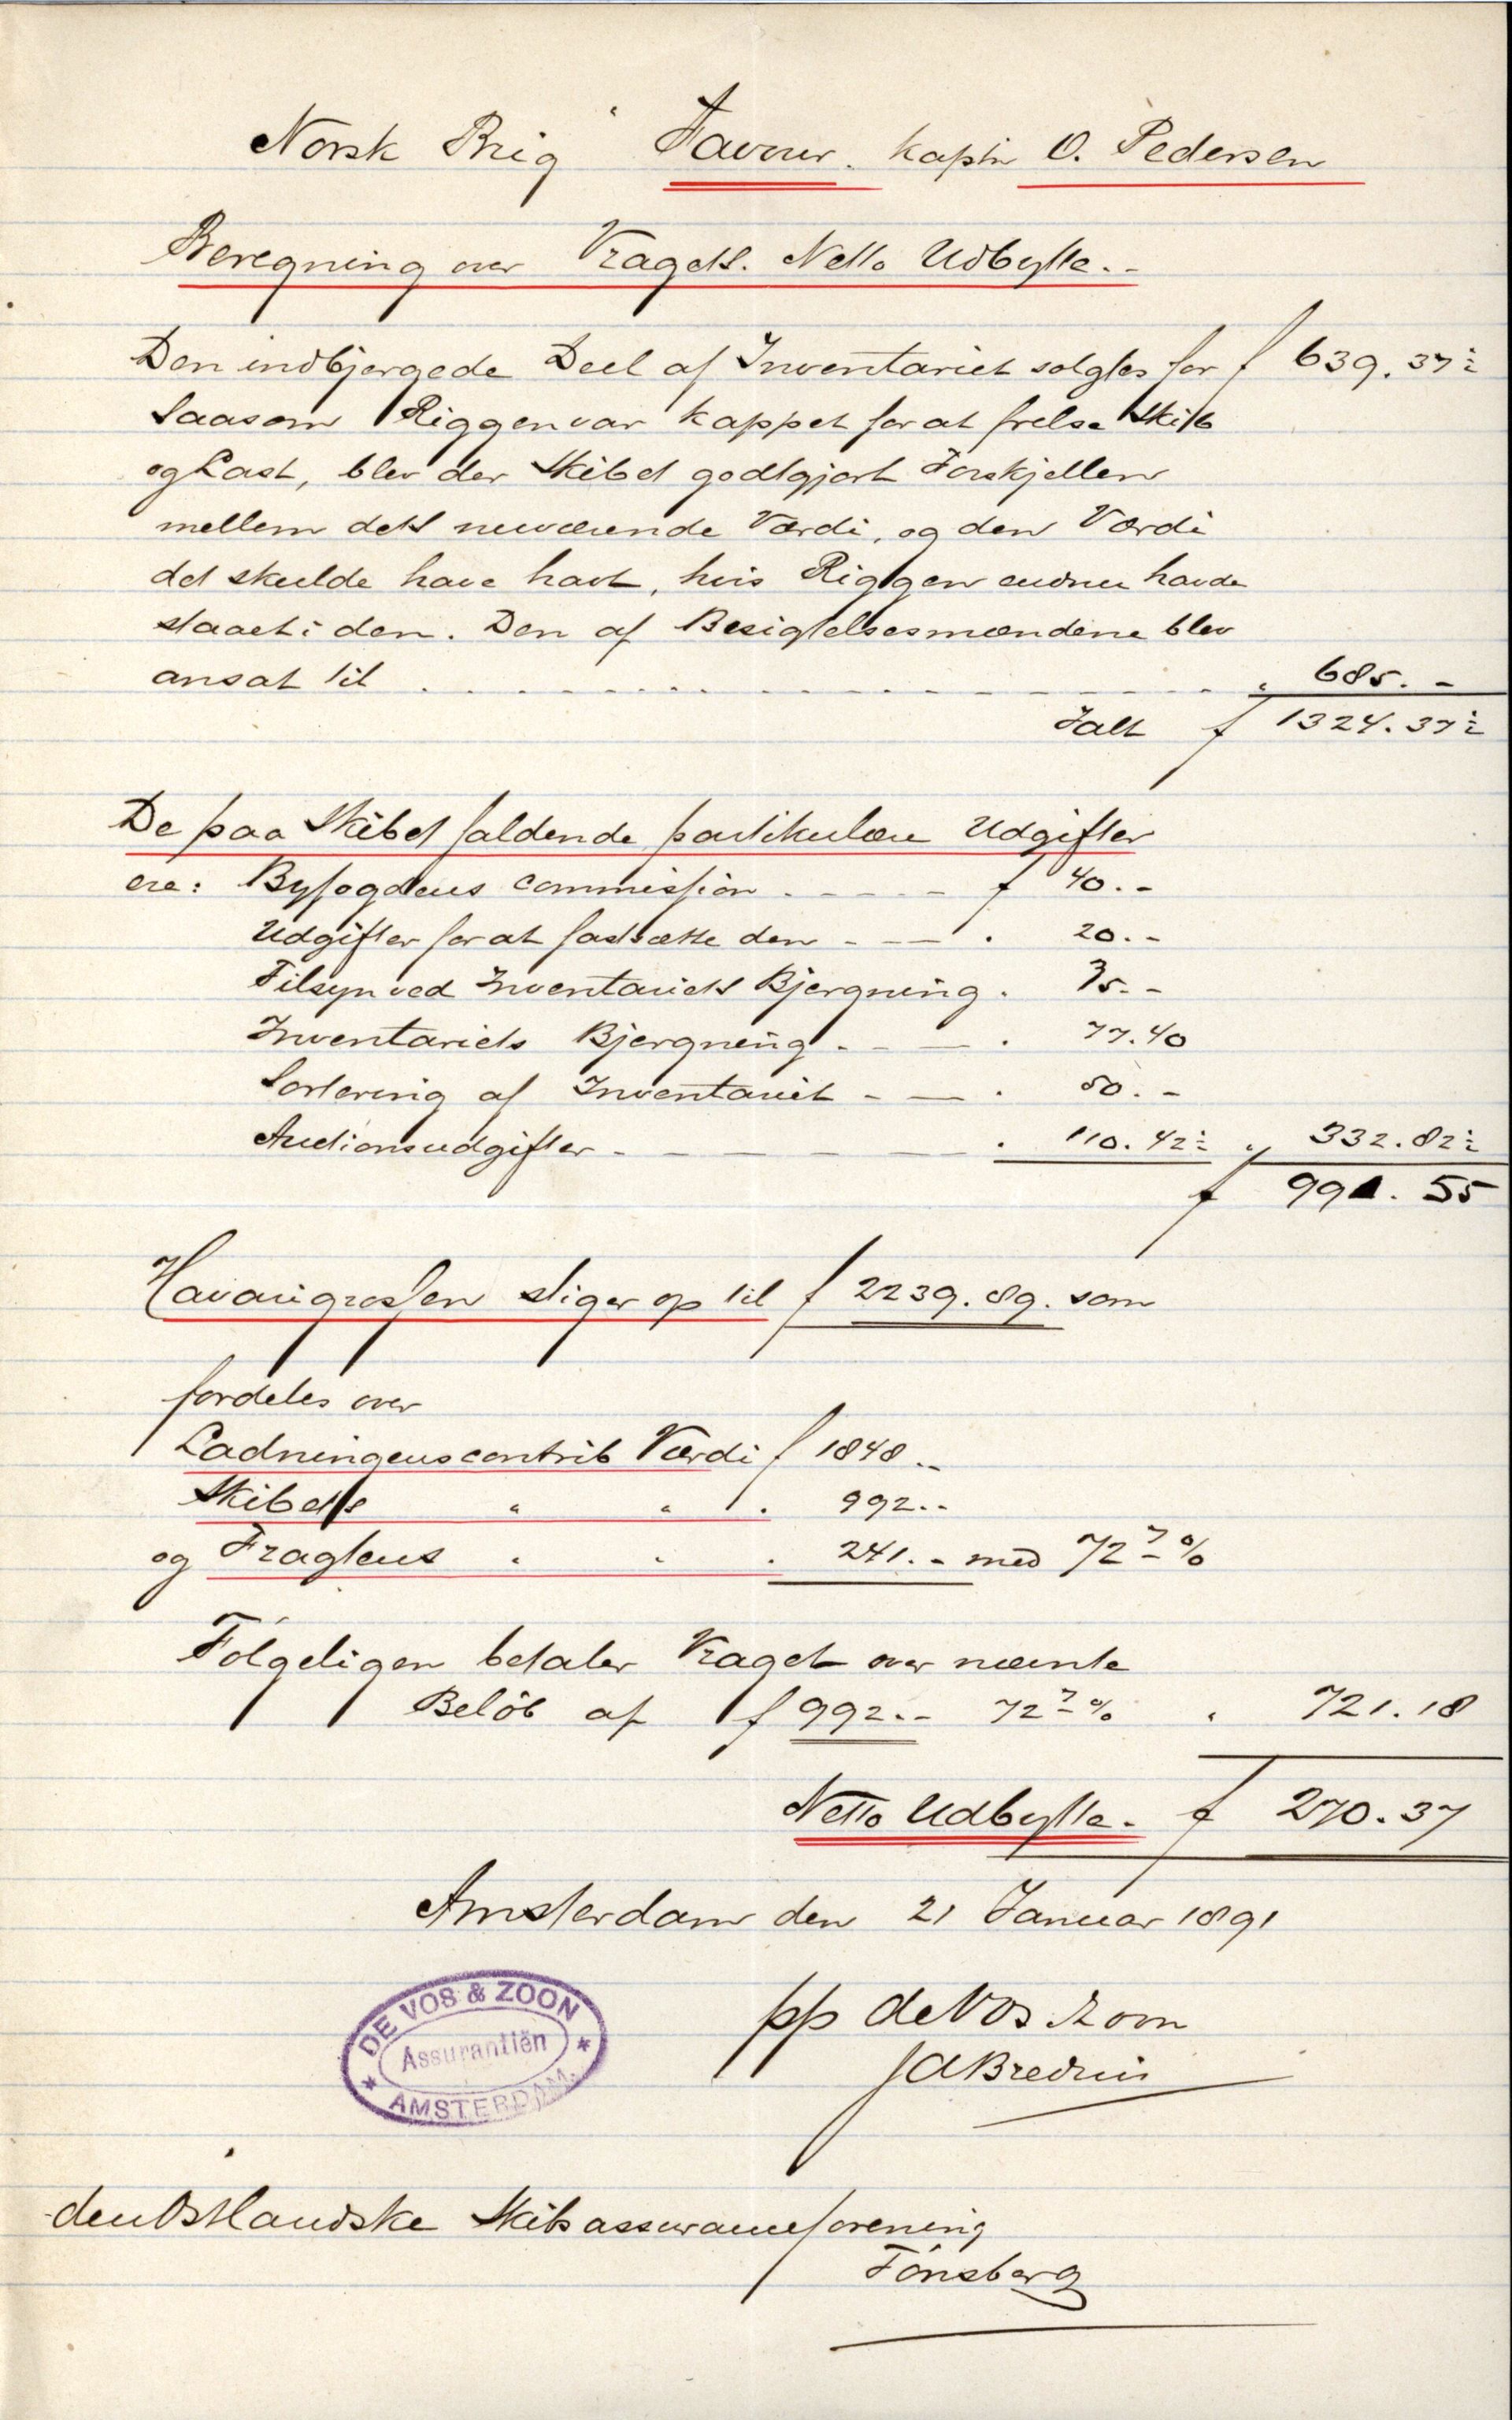 Norsk Brig "Favour. kaptn O. Pedersen
Beregning over Vragets. Netto Udbytte.-
Den indbjergede Deel af Inventariet solgtes for f 639.37½
Saasom Riggen var kappet for at frelse Skib
og Last, blev der Skibet godtgjort Forskjellen
mellem dets nuværende Værdi, og den Værdi
det skulde have havt, hvis Riggen endnu havde
staaet i den. Den af Besigtelsesmændene blev
ansat til " 685.-
Ialt f 1324.37½
De paa Skibet faldende partikulære Udgifter
ere: Byfogdens commission f 40.-
Udgifter for at fastsætte den " 20.-
Tilsyn ved Inventariets Bjergning " 35.-
Inventariets Bjergning " 77.40
Sortering af Inventariet " 50.-
Auctionsudgifter " 110.42½ " 332.82½
f 991.55
Havarigrossen stiger op til f 2239.89. som
fordeles over
Ladningens contrib Værdi f 1848.-
Skibets " " " 992.-
og Fragtens " " " 241.- med 72 7/- %
Følgeligen betaler Vraget over nævnte
Beløb af f 992.- 72 7/- % " 721.18
Netto Udbytte. f 270.37
Amsterdam den 21 Januar 1891
DE VOS & ZOON
Assurantiën
AMSTERDAM.
pp de Vos Zoon
den Østlandske Skibsassuranceforening
Tönsberg